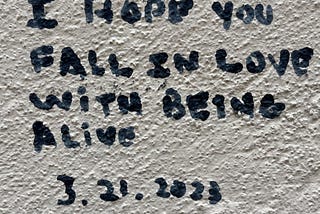 I HOPE YOU
FALL IN LOVE
WiTH BEING
ALive
3.21.2023